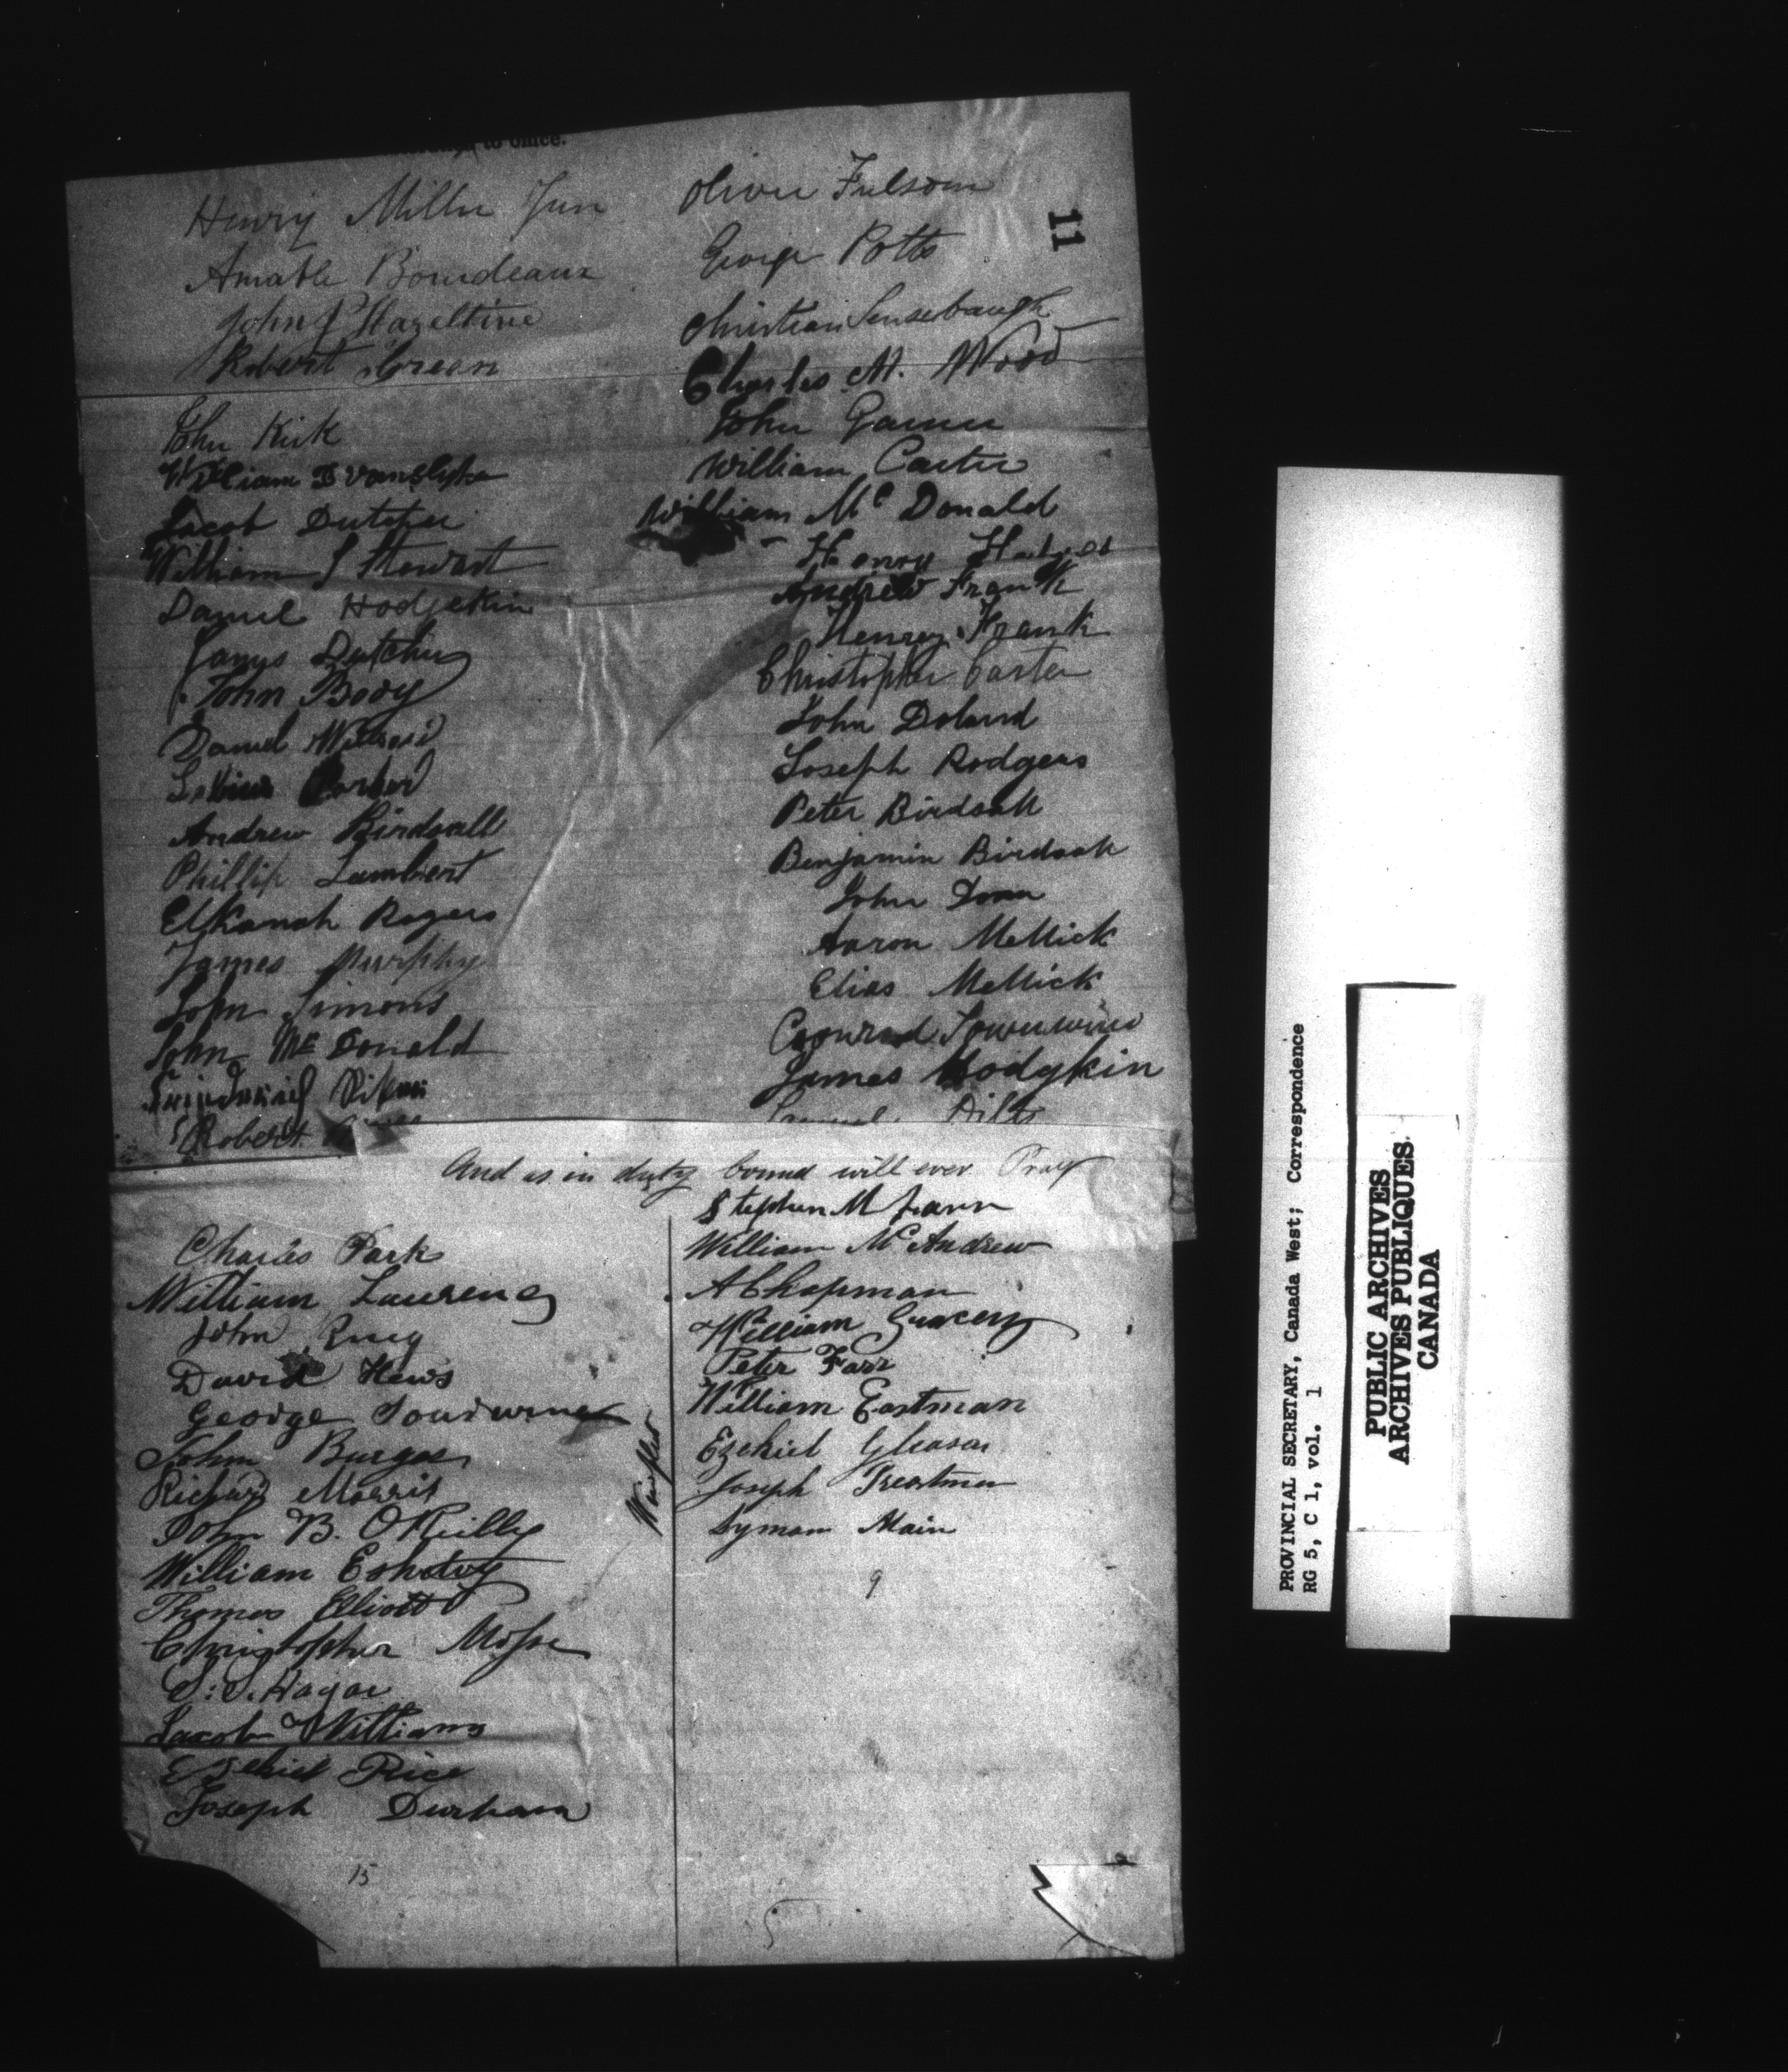 to office.
11
Henry Miller Jun
Amable Bourdeaux
John P Hazeltine
Robert Crean
John Kirk
William D Vanslyke
Jacob Dutcher
William S Stewart
Daniel Hodgekin
James Dutcher
John Body
Daniel
Andrew Birdsall
Phillip Lambert
Elkanah Rogers
James Murphy
John Simons
John Mc Donald
Robert
Oliver Fulsom
George Potts
Christian Sensebaugh
Charles M. Wood
John Garner
William Carter
William Mc Donald
Henry
Andrew Frank
Henrey Frank
Christopher Carter
John Doland
Joseph Rodgers
Peter Birdsall
Benjamin Birdsall
John Doan
Aaron Mellick
Elias Mellick
Conrad
James Hodgkin
Samuel Dilts
And as in duty bound will ever Pray
Charles Park
William Laurence
John
David Hews
George Sourwine
John Burgas
Richard Morris
John B. O'Reilly
William
Thomas Elliott
Christopher Mosse
S. S. Hagar
Jacob Williams
Ezekiel Rice
Joseph Durham
15
Stephen M Farr
William Mc Andrew
A Chapman
William
Peter Farr
William Eastman
Ezekiel Gleason
Joseph
Lyman Main
9
PROVINCIAL SECRETARY, Canada West; Correspondence
RG 5, C 1, vol. 1
PUBLIC ARCHIVES
ARCHIVES PUBLIQUES
CANADA